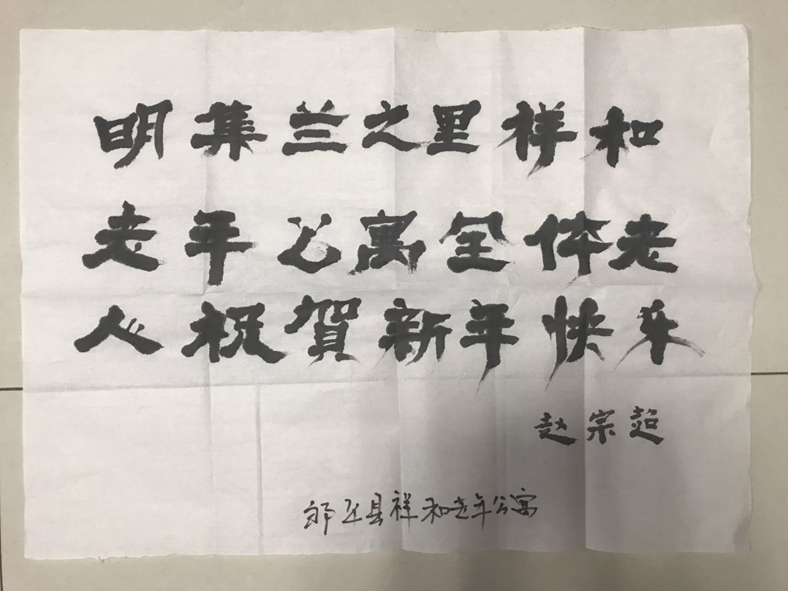 明集兰之里祥和
老年公寓全体老
人祝贺新年快乐
赵宗超
县祥和老年公寓